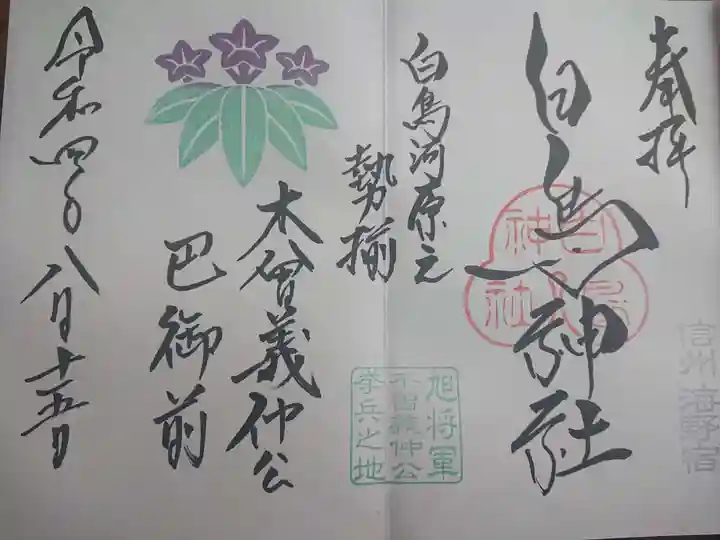 奉拝
白鳥神社
白鳥神社
信州 海野宿
白鳥河原元
勢揃
旭将軍
木曽義仲公
挙兵之地
木曾義仲公
巴御前
令和四年八月十五日